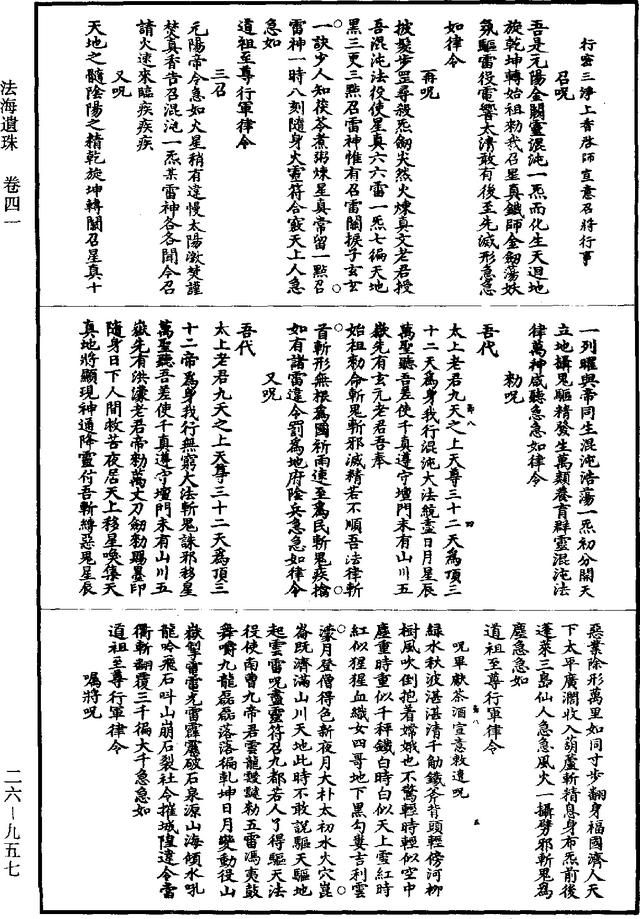 法海遺珠 卷四一
二六—九五七
行密三淨上香啓師宣意召將行事
召呪
吾是元陽金闕靈混沌一炁而化生天迴地
旋乾坤轉始祖勑我召星真鐵師金劒蕩妖
氛驅雷役電響太清敢有後至先滅形急急
如律令
再呪
披髮步罡尋殺炁劒尖然火煉真文老君授
吾混沌法役使星真六六雷一炁七編天地
黑三更三點召雷神惟有召雷閣捩子玄玄
一訣少人知茯苓煮粥煉星真常留一點召
雷神一時八刻隨身火靈符合竅天上人急
急如
道祖至尊行軍律令
三召
元陽帝令急如火星稍有違慢太陽激焚謹
焚真香告召混沌一炁某雷神各各聞令召
請火速來臨疾疾疾
又呪
天地之髓陰陽之精乾旋坤轉關召星真十
一列曜與帝同生混沌浩蕩一炁初分開天
立地攝鬼驅精發生萬類養育群靈混沌法
律萬神咸聽急急如律令
勑呪
吾代
太上老君九天之上天尊三十二天爲頂三
十二天爲身我行混沌大法統盡日月星辰
萬聖聽吾差使千真遵守壇門未有山川五
嶽先有玄元老君吾奉
始祖勑命斬鬼斬邪滅精若不順吾法律斬
首斬形無根爲國祈雨速至爲民斬鬼疾擒
如有諸雷違令罰爲地府陰兵急急如律令
又呪
吾代
太上老君九天之上天尊三十二天爲頂三
十二帝爲身我行無窮大法斬鬼誅邪移星
萬聖聽吾差使千真遵守壇門未有山川五
嶽先有洪濛老君帝勑萬丈刀劒勑賜墨印
隨身日下人間救苦夜居天上移星喚集天
真地將顯現神通降靈付吾斬縛惡鬼星辰
惡業除形萬里如同寸步翻身福國濟人天
下太平廣濶收入葫蘆斬精息身布炁前後
蓬萊三島仙人急急風火一攝劈邪斬鬼爲
塵急急如
道祖至尊行軍律令
呪畢獻茶酒宣意敕遣呪
綠水秋波湛湛清千觔鐵斧背頭輕傍河柳
樹風吹倒抱着嫦娥也不驚輕時輕似空中
塵重時重似千秤鐵白時白似天上雪紅時
紅似猩猩血織女四哥地下黑勾婁吉利雲
濛月登僧得色新夜月大朴太初水火穴崑
崙既濟滿山川天地此時不敢説驅天驅地
起雲雷呪盡靈符召九都若人了得驅天法
役使南曹九帝君雲龍䫻䫻勑五雷馮夷鼓
舞嚼九龍磊磊落落徧乾坤日月變動役山
嶽掣雷電光雷霹靂破石泉源山海傾水吼
龍吟飛石叫山崩石裂社令摧城隍違令當
衝斬翻覆三千徧大千急急如
道祖至尊行軍律令
囑將呪